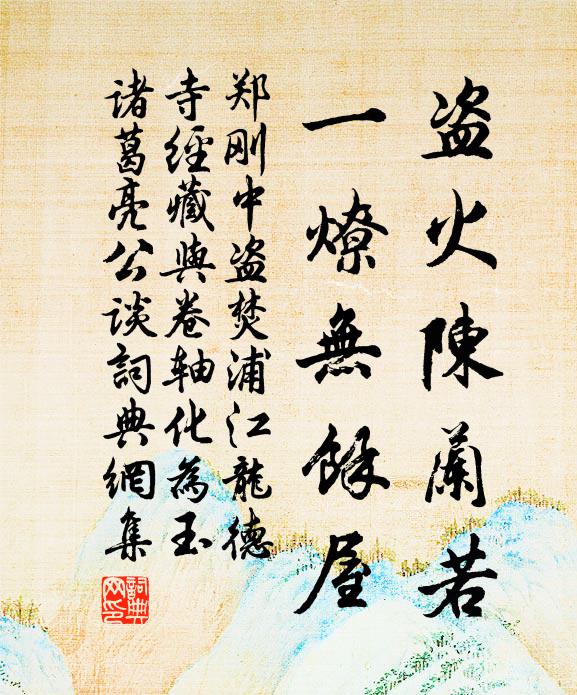 盗火陳蘭若
一燎無餘屋
郑刚中盗焚浦江龍德
寺經藏與卷軸化為玉
诸葛亮公谈詞典網集
詞典網印